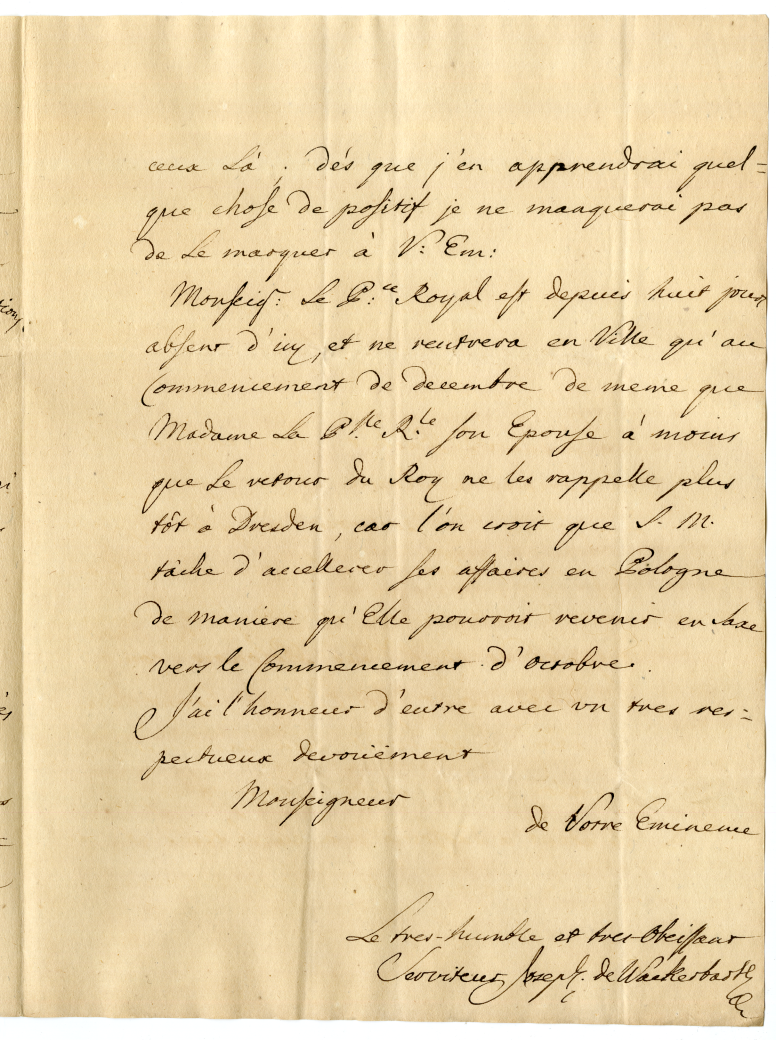 ceux là ; dés que j'en apprendrai quel=
que chose de positif je ne manquerai pas
de Le marquer à V: Em:
Monseig: Le P:ce Royal est depuis huit jours
absent d'icy, et ne rentrera en Ville qu'au
Commencement de decembre de meme que
Madame La P:sse R:le son Epouse à moins
que Le retour du Roy ne les rappelle plus
tôt à Dresden, car l'ón croit que S. M.
tâche d'accellerer ses affaires en Pologne
de maniere qu'Elle pourroit revenir en Saxe
vers le Commencement d'octobre.
J'ai l'honneur d'eutre avec vn tres res=
pectueux devoüement
Monseigneur
de Votre Eminence
Le tres-humble et tres Obeissant
Serviteur Joseph. de Wackerbarth